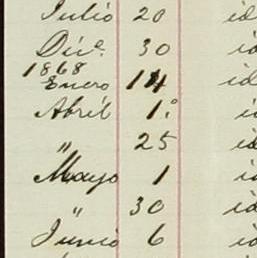 Julio 20 id
Dice. 30 id
1868
Enero 14 id
Abril 1.° id
" 25 id
Mayo 1 id
" 30 id
Junio 6 id